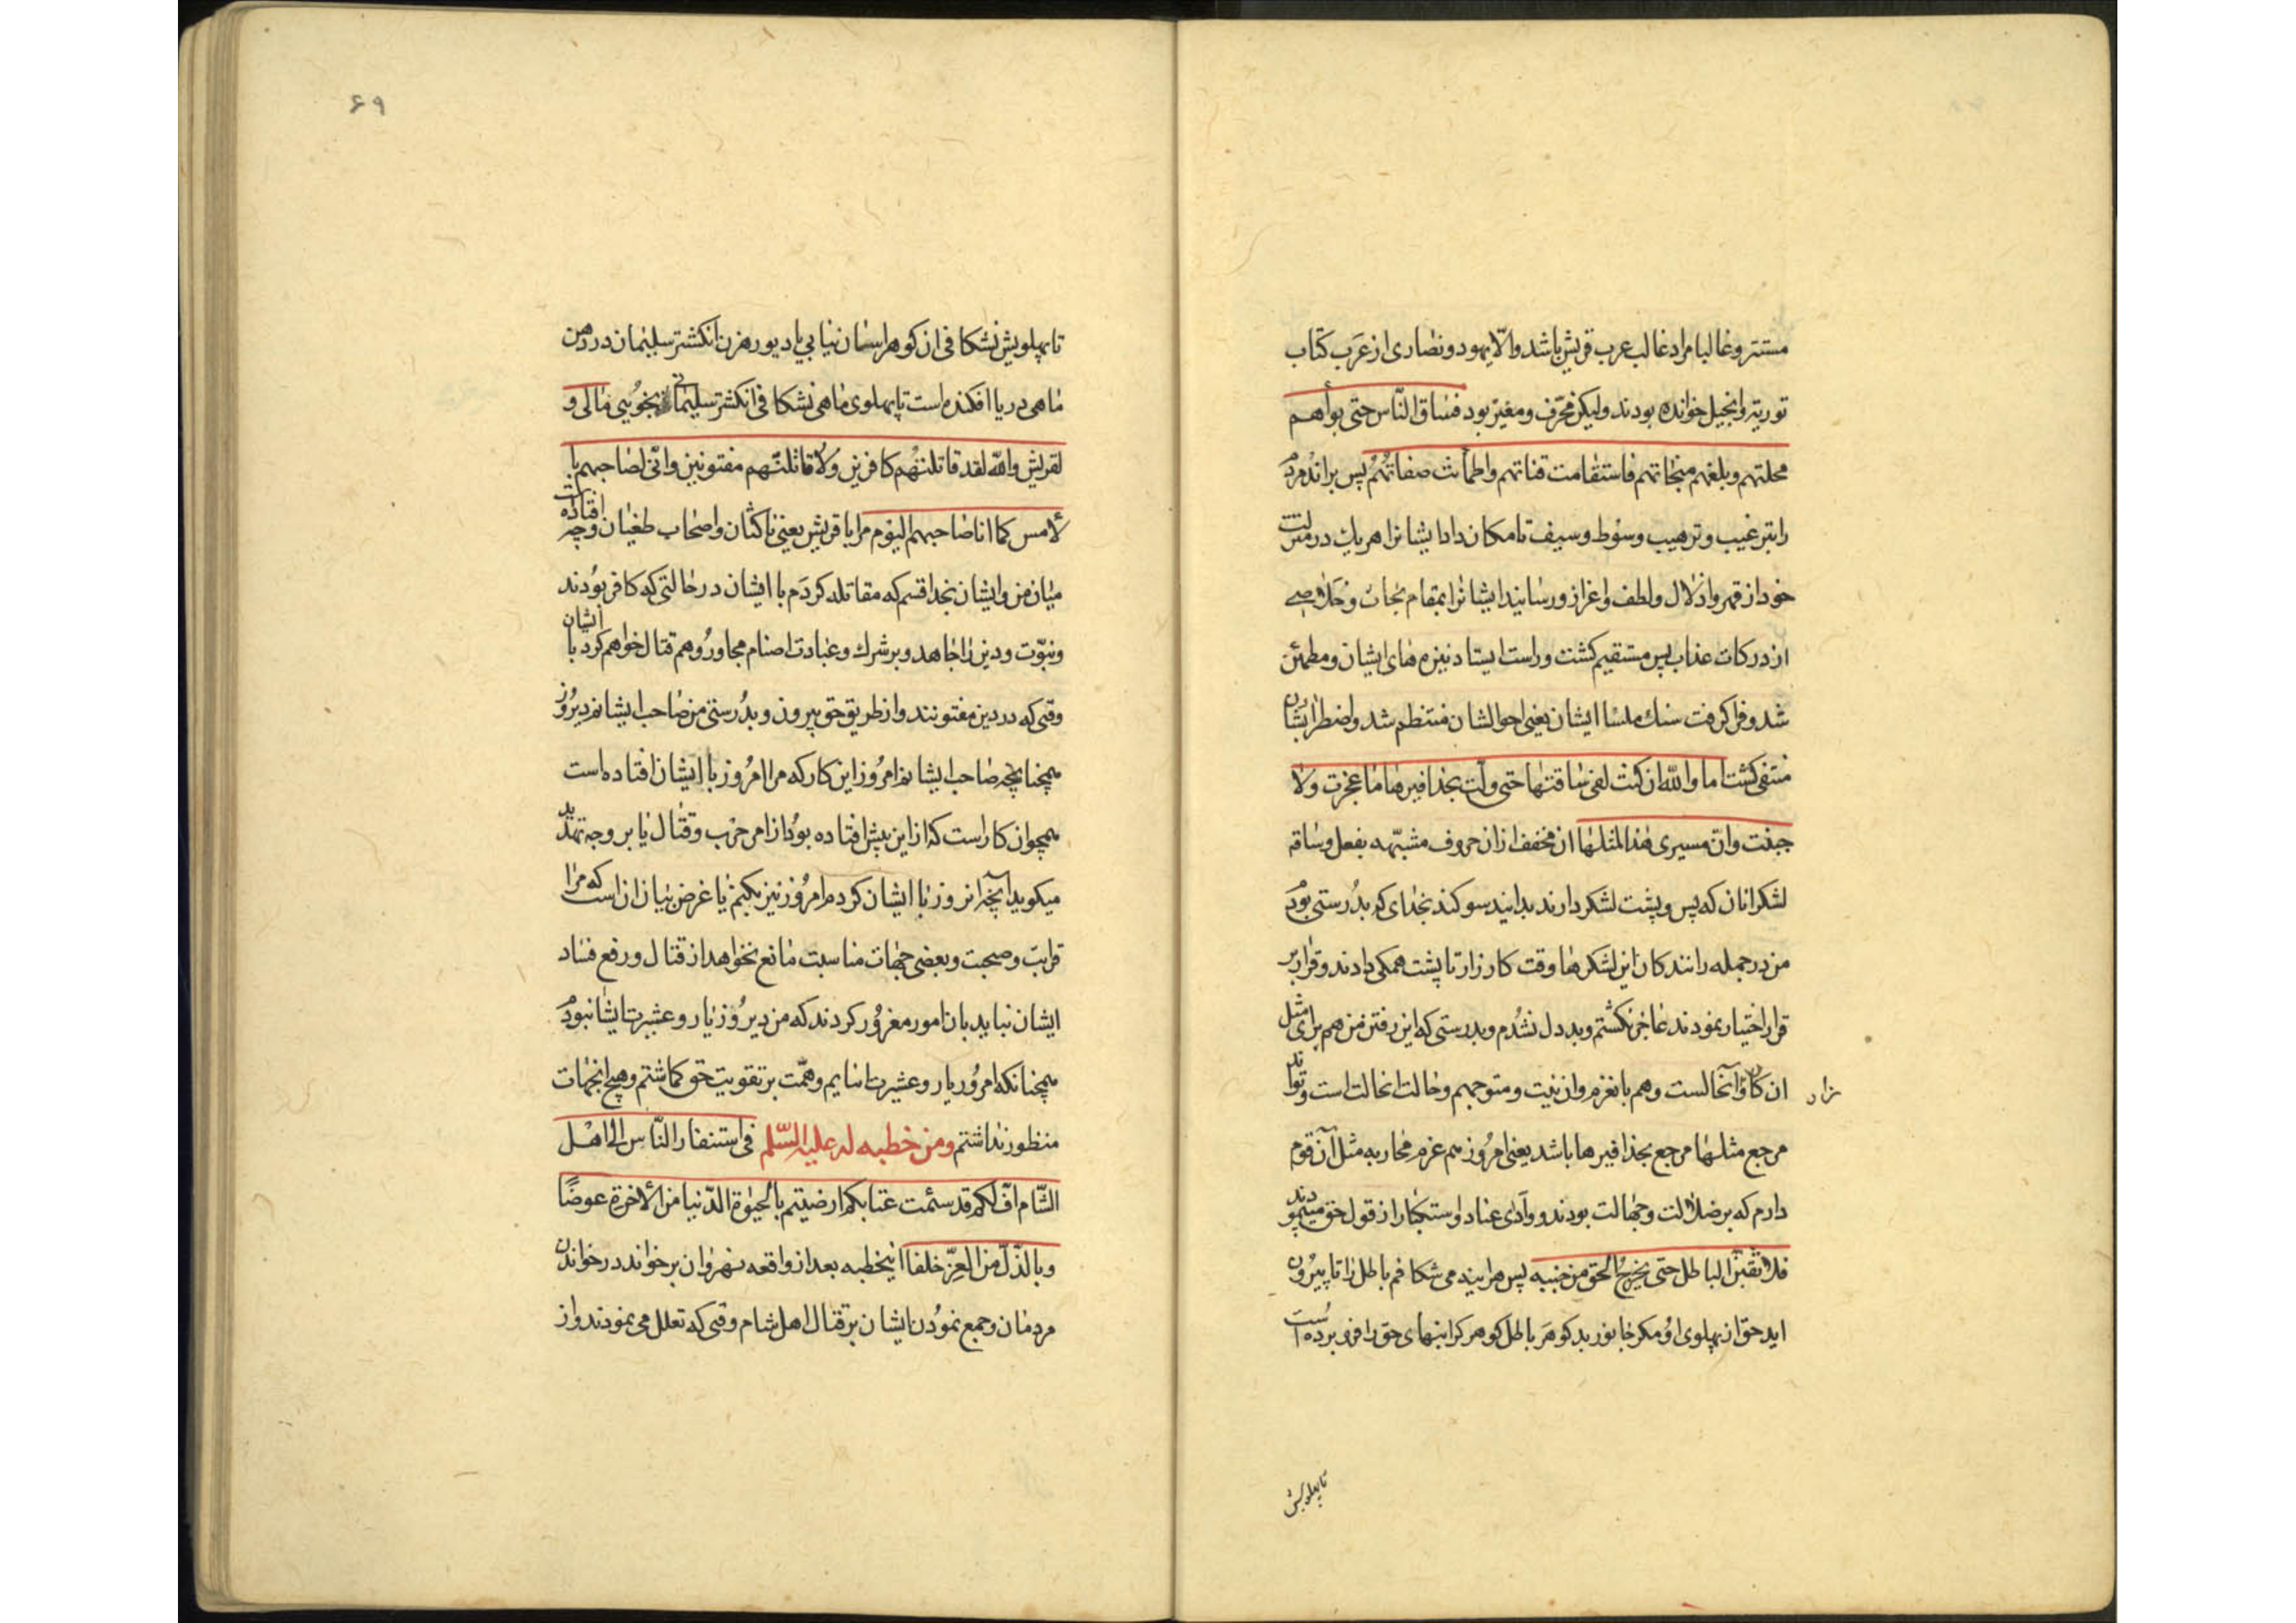 مستتر و غالبا مراد غالب عرب قریش باشد والّا یهود و نصاری از عرب کتاب
توریة و انجیل خوانده بودند و لیکن محرّف و مغیّر بود فساق النّاس حتی بوأهم
محلتهم و بلغهم منجاتهم فاستقامت قناتهم و اطمأنت صفاتهم پس براند مردم
را بترغیب و ترهیب و سوط و سیف تا مکان داد ایشانرا هر یك در منزلت
خود از قهر و اذلال و لطف و اعزاز و رسانید ایشانرا بمقام نجات و خلاصی
از درکات عذاب پس مستقیم کشت و راست ایستاد نیزه های ایشان و مطمئن
شد و فرا کرفت سنك ملسا ایشان یعنی احوالشان منتظم شد و اضطرابشان
منتفی کشت اما والله ان کنت لفی ساقتها حتی ولّت بحذافیرها ما عجزت ولا
جبنت و انّ مسیری هذا لمثلها ان مخفف از ان حروف مشبّهه بفعل و ساقه
لشکر انان که پس و پشت لشکر دارند بدانید سوکند بخدای که بدرستی بودم
من در جمله رانندکان این لشکرها وقت کارزار تا پشت همکی دادند و قرار بر
قرار اختیار نمودند عاجز نکشتم و بد دل نشدم و بدرستی که این رفتن من هم برای مثل
ان کار و آنحالست و هم بانعزم و ان نیت و متوجهم و حالت انحالت است و تواند
نژاد
مرجع مثلها مرجع بحذافیرها باشد یعنی امروز هم عزم محاربه مثل آن قوم
دارم که بر ضلالت و جهالت بودند و وادی عناد و استکبار از قول حق میپمودند
فلأنقبنّ الباطل حتی یخرج الحق من جنبه پس هراینه می شکافم باطل را تا بیرون
اید حق از پهلوی او مکر جانور بد کوهر باطل کوهر کرانبهای حق را فرو برده است
تا پهلویش
۶۹
تا پهلویش نشکافی ان کوهر اسان نیابی یا دیو رهزن انکشتر سلیمان در دهن
ماهی دریا افکنده است تا پهلوی ماهی نشکافی انکشتر سلیمانی نجویی مالی و
لقریش والله لقد قاتلتهم کافرین ولاقاتلنّهم مفتونین و انّی لصاحبهم با
لامس کما انا صاحبهم الیوم مرا با قریش یعنی ناکثان و اصحاب طغیان وچه افتاده است
میان من و ایشان بخدا قسم که مقاتله کردم با ایشان در حالتی که کافر بودند
و نبوّت و دین را جاهد و بر شرك و عبادت اصنام مجاور و هم قتال خواهم کرد با ایشان
وقتی که در دین مفتونند و از طریق حق بیرون و بدرستی من صاحب ایشانم دیروز
همچنانچه صاحب ایشانم امروز این کار که مرا امروز با ایشان افتاده است
همچو ان کار است که از این پیش افتاده بود از امر حرب و قتال یا بر وجه تهدید
میکوید آنچه انروز با ایشان کردم امروز نیز بکنم یا غرض بیان ان است که مرا
قرابت و صحبت و بعضی جهات مناسبت مانع نخواهد از قتال و رفع فساد
ایشان نباید بان امور مغرور کردند که من دیروز یار و عشیرت ایشان نبودم
همچنانکه امروز یار و عشیرت انایم و همّت بر تقویت حق کماشتم و هیچ انجهات
منظور نداشتم و من خطبه له علیه السّلم فی استنفار النّاس الی اهل
الشّام افّ لکم قد سئمت عتابکم ارضیتم بالحیوة الدّنیا من الاخرة عوضًا
و بالذّلّ من العزّ خلفا اینخطبه بعد از واقعه نهروان بر خواند در خواندن
مردمان و جمع نمودن ایشان بر قتال اهل شام وقتی که تعلل می نمودند و از